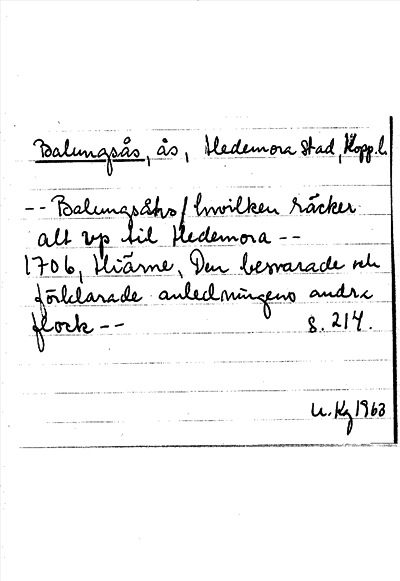 Balungsås, ås, Hedemora stad, Kopp.l.
-- Balungsåhs / hwilken räcker
alt up til Hedemora --
1706, Hiärne, Den beswarade och
förklarade anledningens andra
flock -- s. 214.
U. Kg 1963